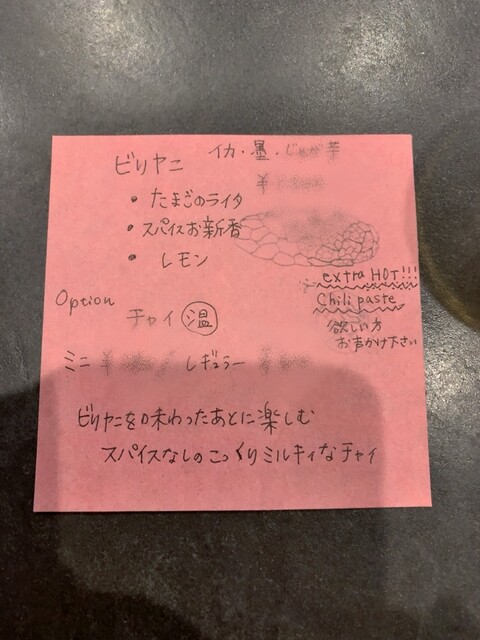 ビリヤニ イカ・墨・じゃが芋
¥
・たまごのライタ
・スパイスお新香
・レモン
extra HOT!!!
Chili paste
欲しい方
お声かけ下さい
Option
チャイ 温
ミニ ¥ レギュラー ¥
ビリヤニを味わったあとに楽しむ
スパイスなしのこっくりミルキィなチャイ